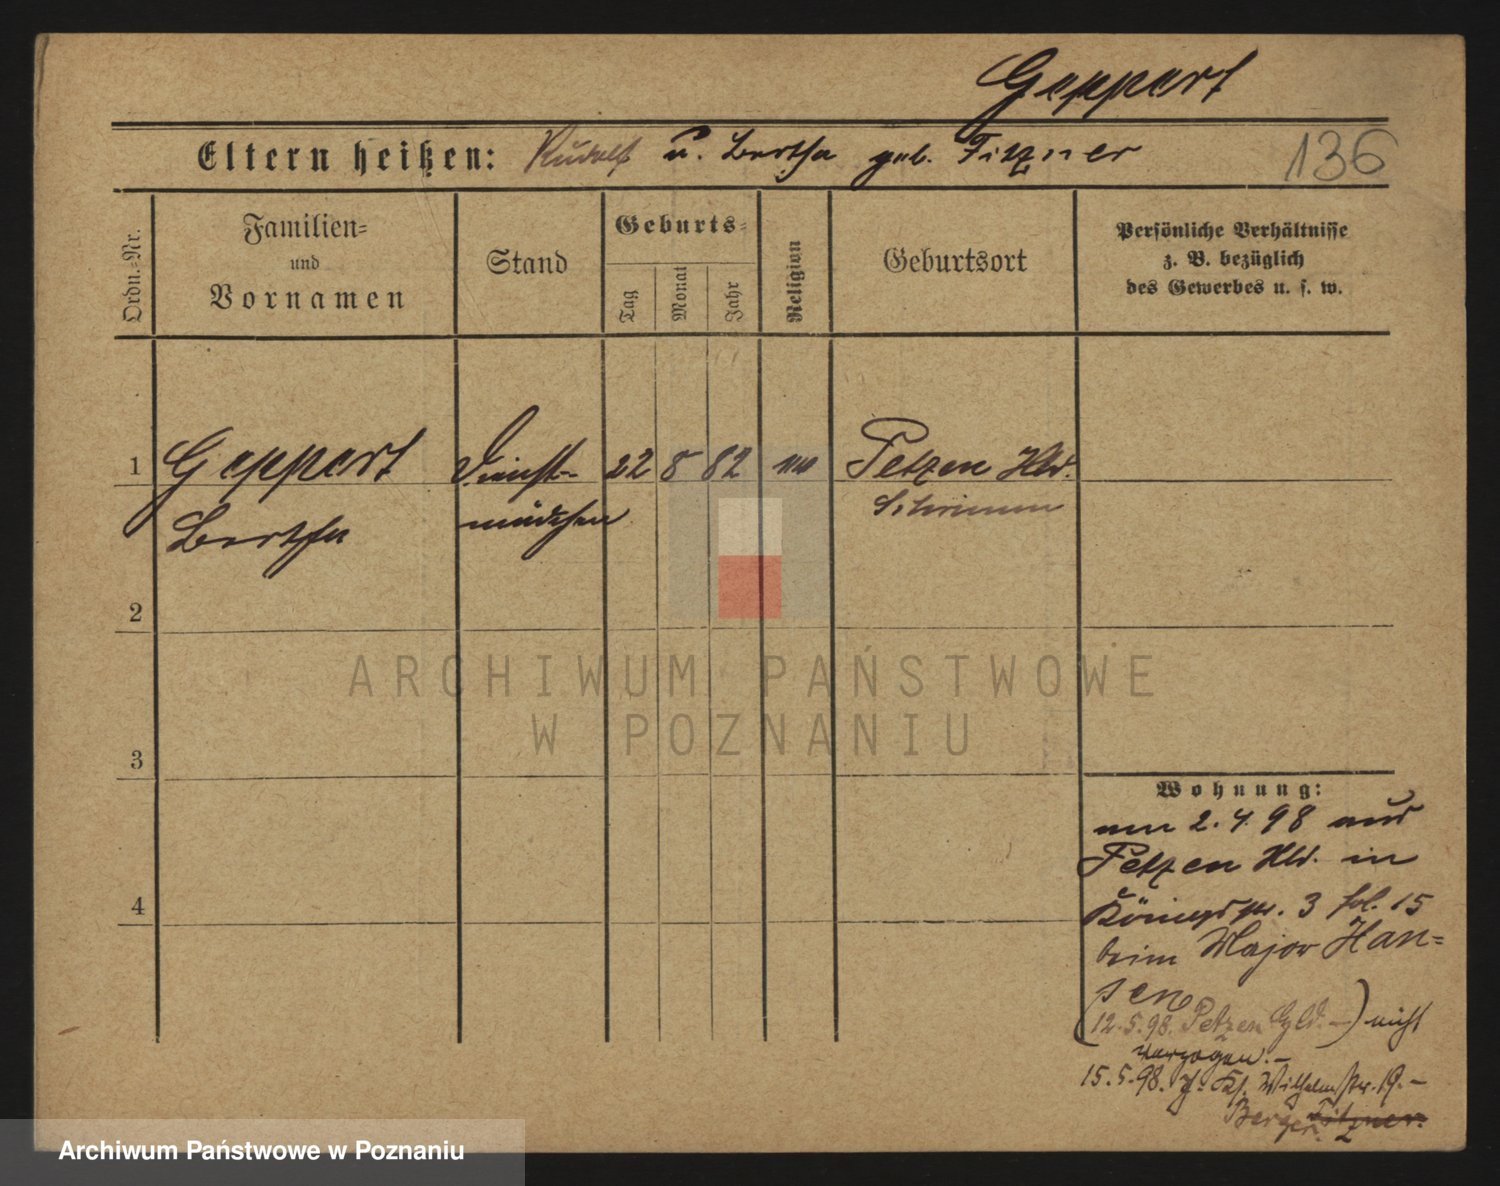 Geppert
Eltern heißen: Rudolf u. Bertha geb. Fitzner
136
Ordn.-Nr.
Familien-
und
Vornamen
Stand
Geburts-
Tag
Monat
Jahr
Religion
Geburtsort
Persönliche Verhältnisse
z. B. bezüglich
des Gewerbes u. s. w.
1
Geppert
Bertha
Dienst-
mädchen
22 8 82
Petzen Hld.
Schrimm
2
3
4
Wohnung:
2. 4. 98 aus
Petzen Hld. in
Königstr. 3 fol. 15
beim Major Han=
sen
(12.5.98. Petzen Hld. —) nicht
verzogen. —
15.5.98. Wilhelmstr. 19. —
Berger. Fitzner.
ARCHIWUM PAŃSTWOWE
W POZNANIU
Archiwum Państwowe w Poznaniu